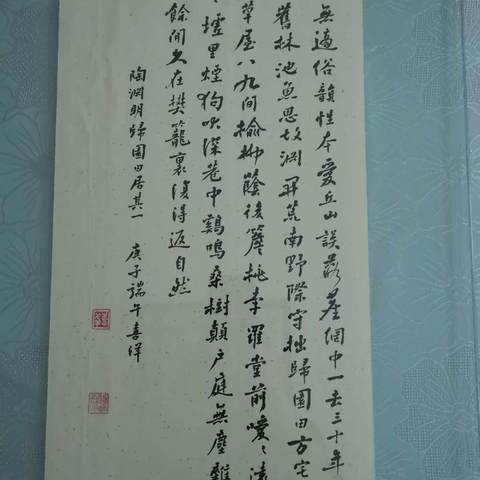 無適俗韻性本愛丘山誤落塵網中一去三十年
舊林池魚思故渊開荒南野際守拙歸園田方宅
草屋八九間榆柳蔭後簷桃李羅堂前曖〻遠
墟里煙狗吠深巷中鷄鳴桑樹顛戶庭無塵雜
餘閒久在樊籠裏復得返自然
陶渊明歸園田居其一 庚子端午喜祥